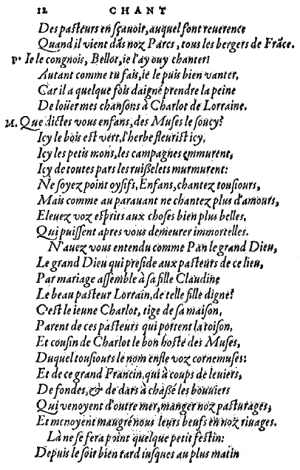 12 CHANT
Des pasteurs en sçavoir, auquel font reuerence
Quand il vient dãs noz Parcs, tous les bergers de Frãce.
P. Ie le congnois, Bellot, ie l'ay ouy chanter:
Autant comme tu fais, ie le puis bien vanter,
Car il a quelque fois daigné prendre la peine
De loüer mes chansons à Charlot de Lorraine.
M. Que dictes vous enfans, des Muses le soucy?
Icy le bois est vert, l'herbe fleurist icy,
Icy les petis mons, les campagnes emmurent,
Icy de toutes pars les ruisselets murmurent:
Ne soyez point oysifs, Enfans, chantez tousiours,
Mais comme au parauant ne chantez plus d'amours,
Eleuez voz esprits aux choses bien plus belles,
Qui puissent apres vous demeurer immortelles.
N'auez vous entendu comme Pan le grand Dieu,
Le grand Dieu qui preside aux pasteurs de ce lieu,
Par mariage assemble à sa fille Claudine
Le beau pasteur Lorrain, de telle fille digne?
C'est le ieune Charlot, tige de sa maison,
Parent de ces pasteurs qui portent la toison,
Et cousin de Charlot le bon hoste des Muses,
Duquel tousiours le nom enfle voz cornemuses:
Et de ce grand Francin, qui à coups de leuiers,
De fondes, & de dars à chassé les bouuiers
Qui venoyent d'outre mer, manger noz pasturages,
Et menoyent maugré nous leurs beufs en noz riuages.
Là ne se fera point quelque petit festin:
Depuis le soir bien tard iusques au plus matin